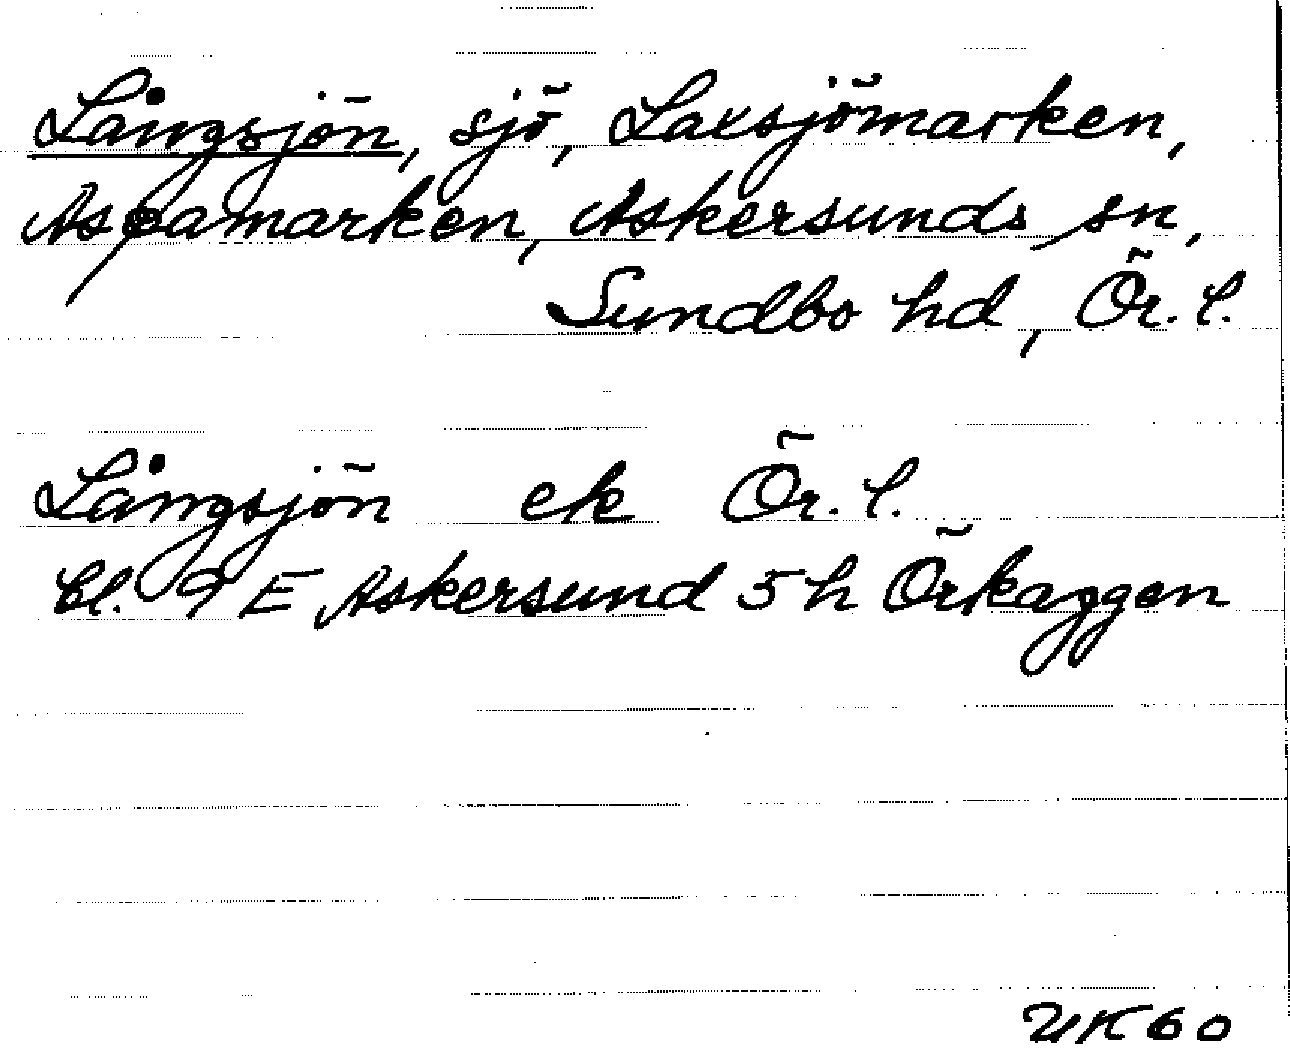 Långsjön, sjö, Laxsjömarken,
Aspamarken, Askersunds sn,
Sundbo hd, Ör. l.
Långsjön ek Ör. l.
bl. 9 E Askersund 5 h Örkaggen
UK 60